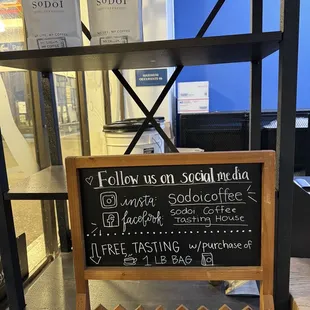 SODOI
SODOI
Follow us on social media
insta sodoicoffee
facebook sodoi Coffee
Tasting House
FREE TASTING w/purchase of
1 LB BAG